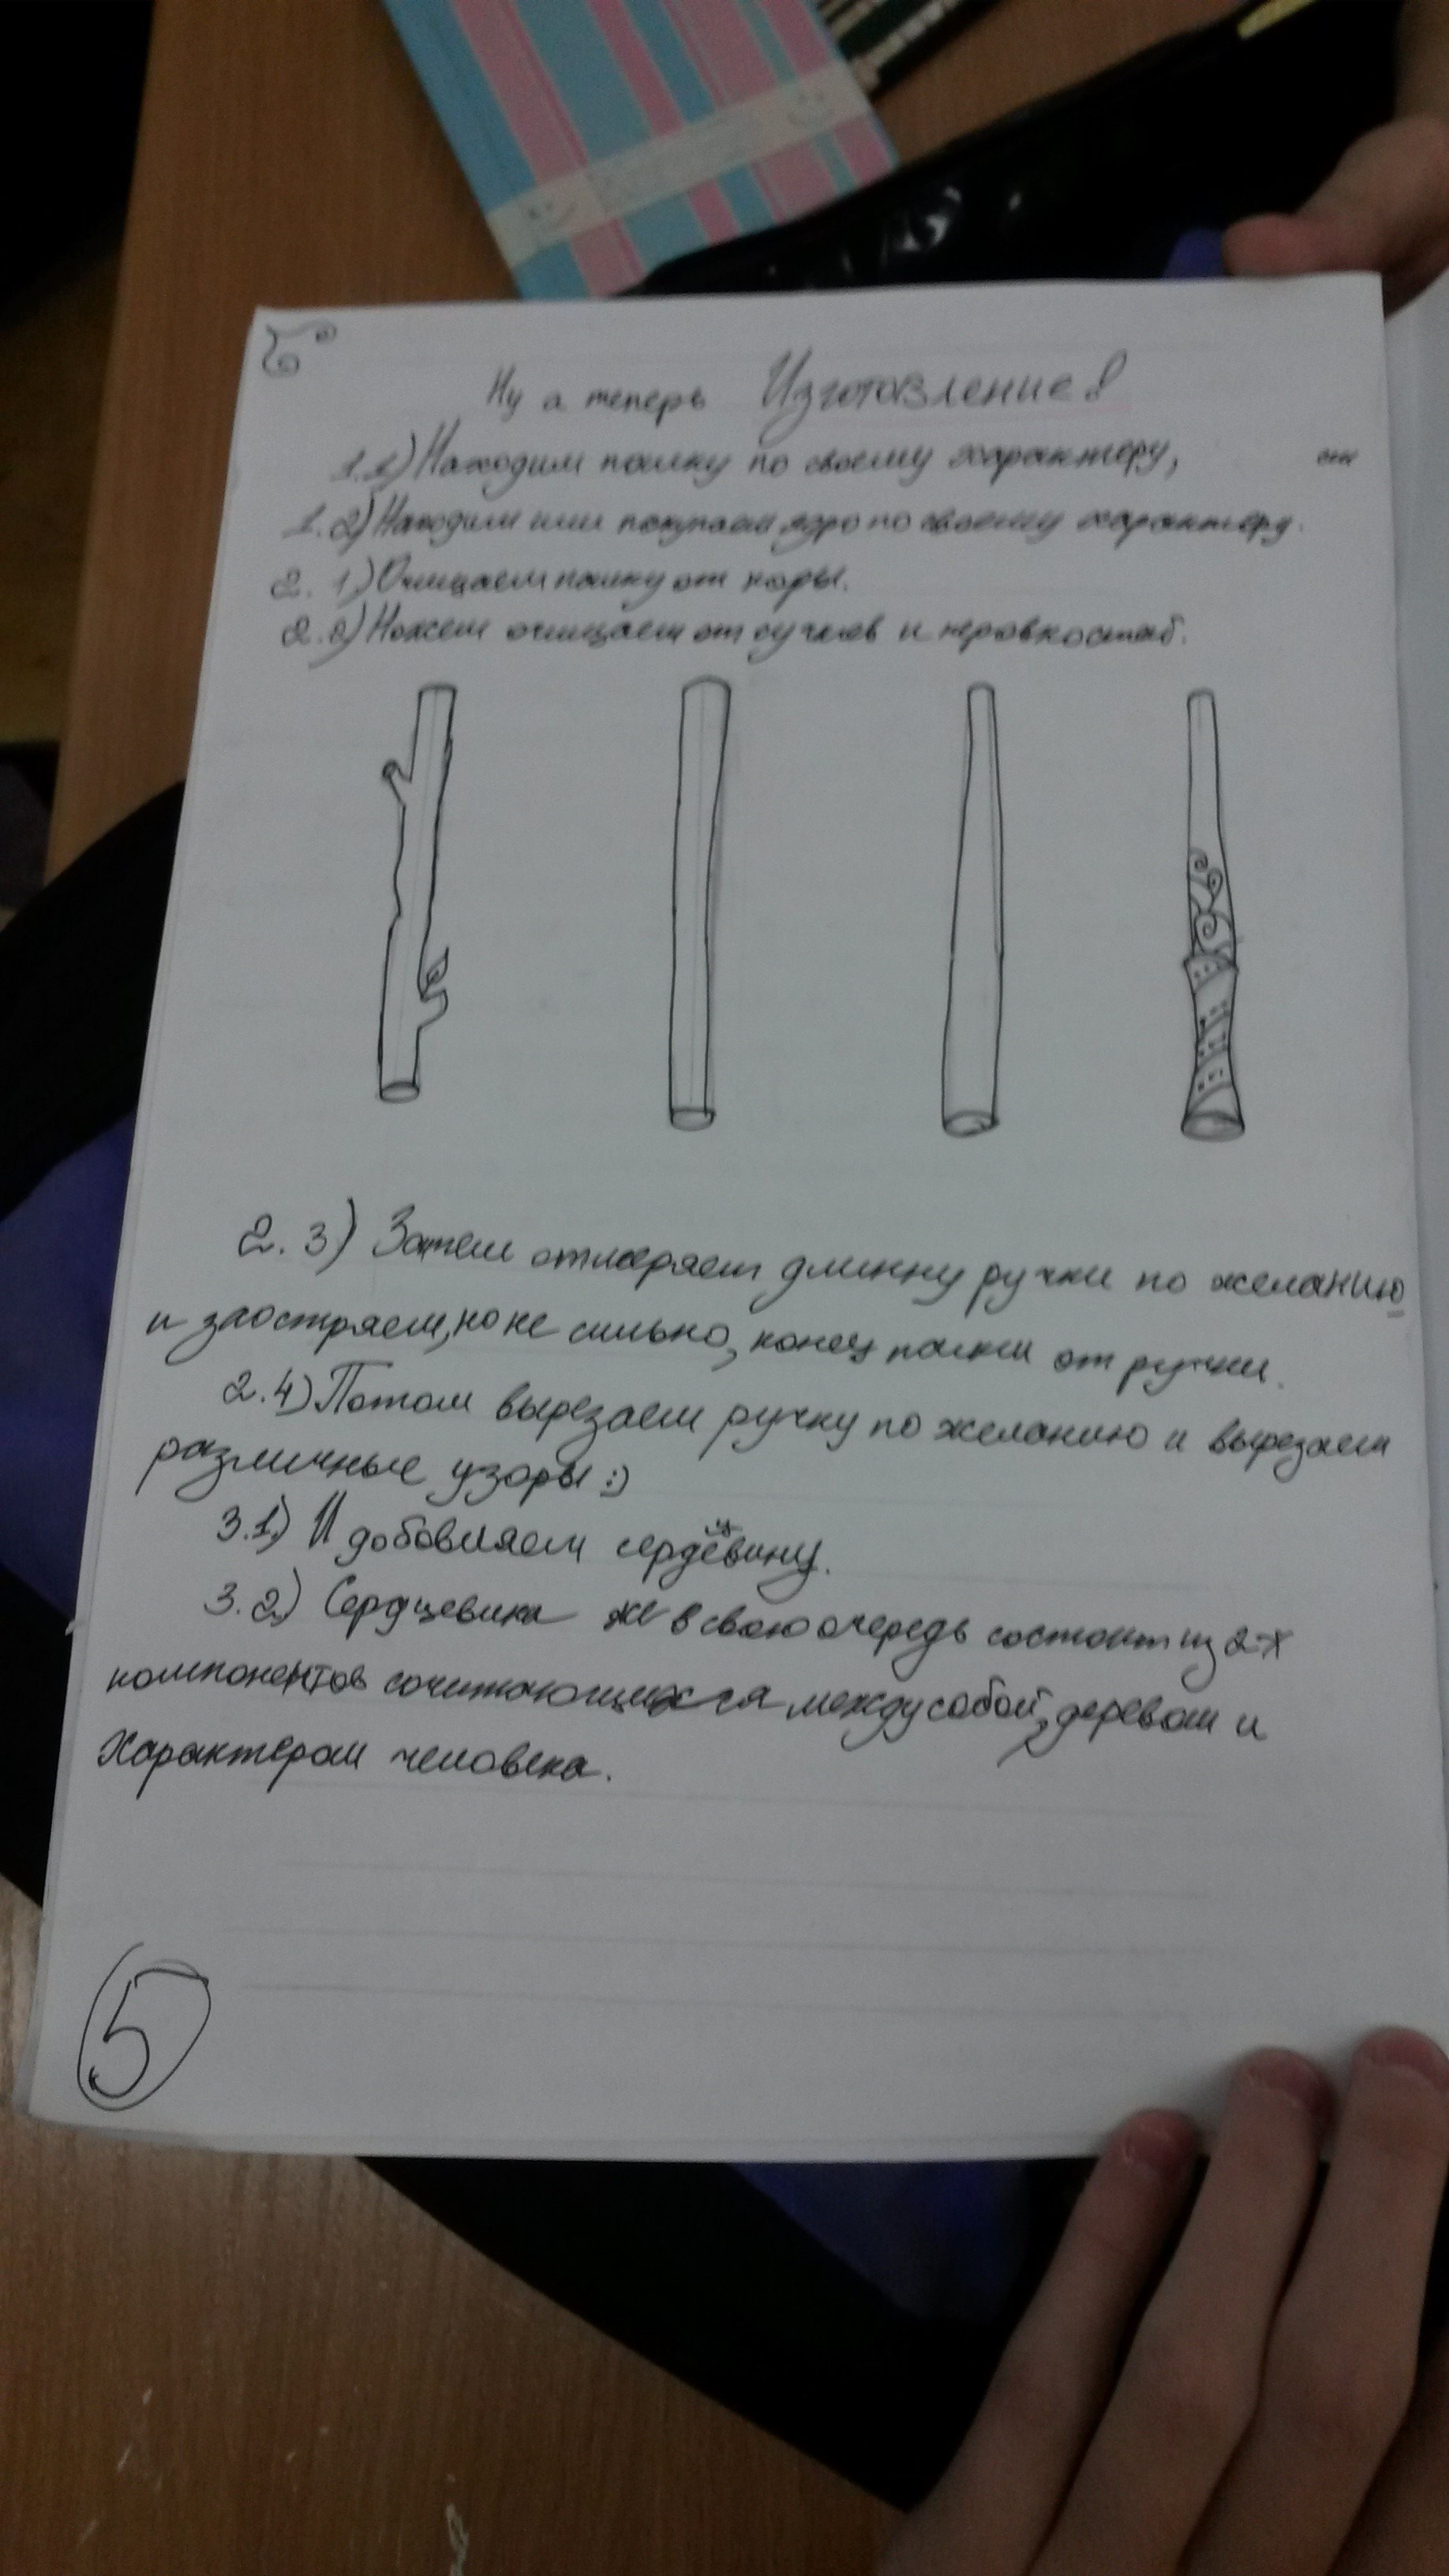 Ну а теперь Изготовление!
1.1) Находим палку по своему характеру,
1.2) Находим или покупаем ядро по своему характеру.
2.1) Очищаем палку от коры.
2.2) Ножем очищаем от сучков и неровностей.
2.3) Затем отмеряем длинну ручки по желанию
и заостряем, но не сильно, конец палки от ручки.
2.4) Потом вырезаем ручку по желанию и вырезаем
различные узоры :)
3.1) И добовляем сердцевину.
3.2) Сердцевина же в свою очередь состоит из 2-х
компонентов сочитающихся между собой, деревом и
характером человека.
5